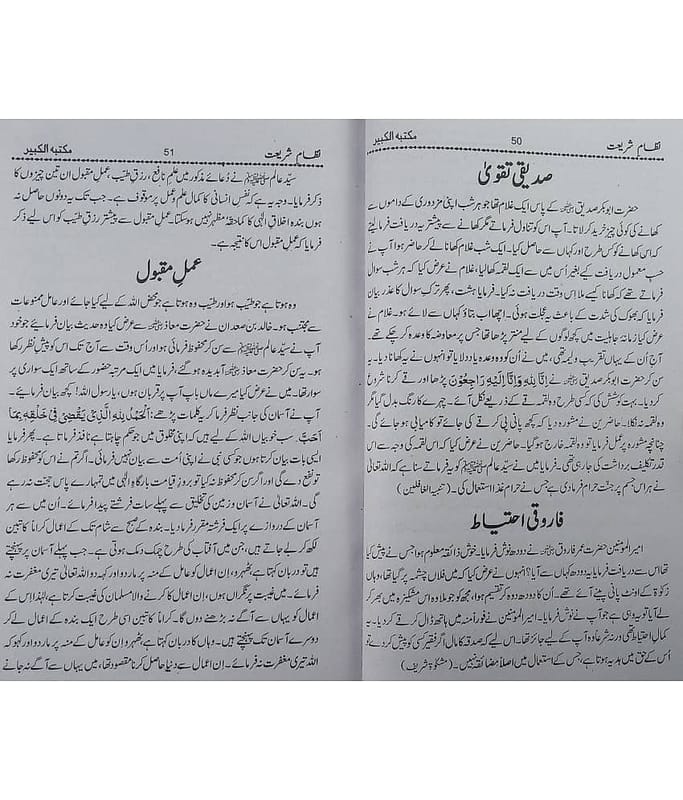 نظام شریعت 50 مکتبہ الکبیر
صدیقی تقویٰ
حضرت ابوبکر صدیق رضی اللہ عنہ کے پاس ایک غلام تھا جو ہر شب اپنی مزدوری کے داموں سے
کھانے کی کوئی چیز خرید کر لاتا۔ آپ اس کو تناول فرماتے مگر کھانے سے پیشتر یہ دریافت فرما لیتے
کہ اس کھانے کو کس طرح اور کہاں سے حاصل کیا۔ ایک شب غلام کھانا لے کر حاضر ہوا آپ نے
حسب معمول دریافت کیے بغیر اُس میں سے ایک لقمہ کھا لیا، غلام نے عرض کیا کہ ہر شب سوال
فرماتے تھے کہ کھانا کیسے ملا اِس وقت دریافت نہ کیا۔ فرمایا ہشت، پھر ترکِ سوال کا عذر بیان
فرمایا کہ بھوک کی شدت کے باعث یہ عجلت ہوئی۔ اچھا اب بتاؤ کہاں سے لائے ہو۔ غلام نے
عرض کیا زمانہ جاہلیت میں کچھ لوگوں کے لیے منتر پڑھا تھا جس پر معاوضہ کا وعدہ کر چکے تھے۔
آج اُن کے یہاں تقریب ولیمہ تھی، میں نے اُن کو وہ وعدہ یاد دلایا تو انہوں نے یہ کھانا دیا۔ یہ
سن کر حضرت ابوبکر صدیق رضی اللہ عنہ نے اِنَّا لِلّٰهِ وَاِنَّا اِلَيْهِ رَاجِعُوْنَ پڑھا اور قے کرنا شروع
کر دیا۔ بہت کوشش کی کہ کسی طرح وہ لقمہ قے کے ذریعے نکل آئے۔ چہرے کا رنگ بدل گیا مگر
وہ لقمہ نہ نکلا۔ حاضرین نے مشورہ دیا کہ کچھ پانی پی کر قے کی جائے تو کامیابی ہو جائے گی۔
چنانچہ مشورہ پر عمل فرمایا تو وہ لقمہ خارج ہو گیا۔ حاضرین نے عرض کیا کہ اس لقمہ کی وجہ سے اس
قدر تکلیف برداشت کی جا رہی تھی۔ فرمایا میں نے سیّد عالم ﷺ کو یہ فرماتے سنا ہے کہ اللہ تعالیٰ
نے ہر اس جسم پر جنت حرام فرما دی ہے جس نے حرام غذا استعمال کی۔ (تنبیہ الغافلین)
فاروقی احتیاط
امیرالمؤمنین حضرت عمر فاروق رضی اللہ عنہ نے دودھ نوش فرمایا۔ خوش ذائقہ معلوم ہوا جس نے پیش کیا
تھا اس سے دریافت فرمایا یہ دودھ کہاں سے آیا؟ انہوں نے عرض کیا کہ میں فلاں چشمہ پر گیا تھا، وہاں
زکوٰۃ کے اونٹ پانی پینے آئے تھے۔ اُن کا دودھ وہ کر تقسیم ہوا، مجھ کو جو ملا وہ اس مشکیزہ میں بھر کر
لے آیا تو یہ وہی ہے جو آپ نے نوش فرمایا۔ امیرالمؤمنین نے فوراً منہ میں ہاتھ ڈال کر قے کر دیا۔ یہ
کمال احتیاط تھی ورنہ شرعاً وہ آپ کے لیے جائز تھا۔ اس لیے کہ صدقہ کا مال اگر فقیر کسی کو پیش کر دے تو
اُس کے حق میں ہدیہ ہوتا ہے، جس کے استعمال میں اصلاً مضائقہ نہیں۔ (مشکوٰۃ شریف)
نظام شریعت 51 مکتبہ الکبیر
سیّد عالم ﷺ نے دُعائے مذکور میں علم نافع، رزق طیب، عمل مقبول ان تین چیزوں کا
ذکر فرمایا۔ وجہ یہ ہے کہ نفس انسانی کا کمال علم و عمل پر موقوف ہے۔ جب تک یہ دونوں حاصل نہ
ہوں بندہ اخلاق الٰہی کا کماحقہٗ مظہر نہیں ہو سکتا۔ عمل مقبول سے پیشتر رزق طیب کو اس لیے ذکر
فرمایا کہ عمل مقبول اس کا نتیجہ ہے۔
عمل مقبول
وہ ہوتا ہے جو طیب ہو اور طیب وہ ہوتا ہے جو محض اللہ کے لیے کیا جائے اور عامل ممنوعات
سے مجتنب ہو۔ خالد بن معدان نے حضرت معاذ رضی اللہ عنہ سے عرض کیا وہ حدیث بیان فرمائیے جو خود
آپ نے سیّد عالم ﷺ سے سن کر محفوظ فرمائی ہو اور اُس وقت سے آج تک اس کو پیش نظر رکھا
ہو۔ یہ سن کر حضرت معاذ رضی اللہ عنہ آبدیدہ ہو گئے، فرمایا میں ایک مرتبہ حضور کے ساتھ ایک سواری پر
سوار تھا۔ میں نے عرض کیا میرے ماں باپ آپ پر قربان ہوں، یارسول اللہ! کچھ بیان فرمائیے۔
آپ نے آسمان کی جانب نظر فرما کر یہ کلمات پڑھے: اَلْحَمْدُ لِلّٰهِ الَّذِيْ يَقْضِيْ فِيْ خَلْقِهٖ بِمَا
اَحَبَّ۔ سب خوبیاں اللہ کے لیے ہیں کہ اپنی مخلوق میں جو حکم چاہتا ہے نافذ فرماتا ہے۔ پھر فرمایا
ایسی بات بیان کرتا ہوں جو کسی نبی نے اپنی اُمت سے بیان نہیں فرمائی۔ اگر تم نے اس کو محفوظ رکھا
تو نفع دے گی اور اگر سن کر محفوظ نہ کیا تو بروز قیامت بارگاہ الٰہی میں تمہارے پاس حجت نہ رہے
گی۔ اللہ تعالیٰ نے آسمان و زمین کی تخلیق سے پہلے سات فرشتے پیدا فرمائے۔ اُن میں سے ہر
آسمان کے دروازے پر ایک فرشتہ مقرر فرما دیا۔ بندہ کے صبح سے شام تک کے اعمال کراماً کاتبین
لکھ کر لے جاتے ہیں، جن میں آفتاب کی طرح چمک دمک ہوتی ہے۔ جب پہلے آسمان پر پہنچتے
ہیں تو دربان کہتا ہے، ٹھہرو، اِن اعمال کو عامل کے منہ پر مار دو اور کہہ دو اللہ تعالیٰ تیری مغفرت نہ
فرمائے۔ میں غیبت پر نگراں ہوں، اِن اعمال کا کرنے والا مسلمان کی غیبت کرتا ہے، لہٰذا اِس کے
اعمال کو یہاں سے آگے نہ بڑھنے دوں گا۔ کراماً کاتبین اسی طرح ایک بندہ کے اعمال لے کر
دوسرے آسمان تک پہنچتے ہیں۔ وہاں کا دربان کہتا ہے ٹھہرو اِن اعمال کو عامل کے منہ پر مار دو اور کہو کہ
اللہ تیری مغفرت نہ فرمائے۔ اِن اعمال سے دنیا حاصل کرنا مقصود تھا، میں یہاں سے آگے نہ جانے